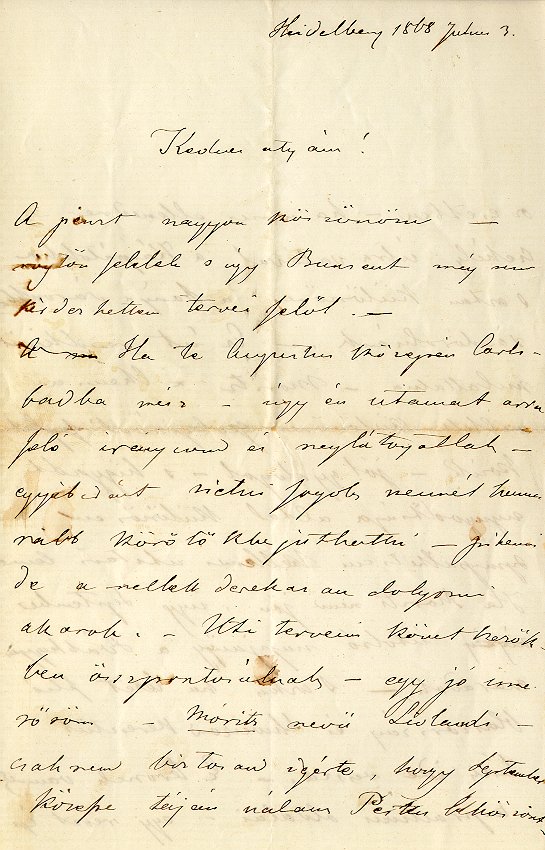 Heidelberg 1868 Julius 3.
Kedves atyám!
A pénzt nagyon köszönöm –
rögtön feleltek s így Bunsent még nem
kérdezhettem tervei felöl. –
A Ha te Augustus közepén Carls-
badba mész – úgy én utamat arra
felé irányzom és meglátogatlak –
egyébiránt sietni fogok mennél hama
rább körötökbe juthatni – pihenni
de a mellett derekasan dolgozni
akarok. – Uti terveim következők-
ben öszpontosulnak – egy jó isme
rösöm – Móritz nevü Livlandi –
csaknem biztosan igérte, hogy September
közepe táján nálam Pesten